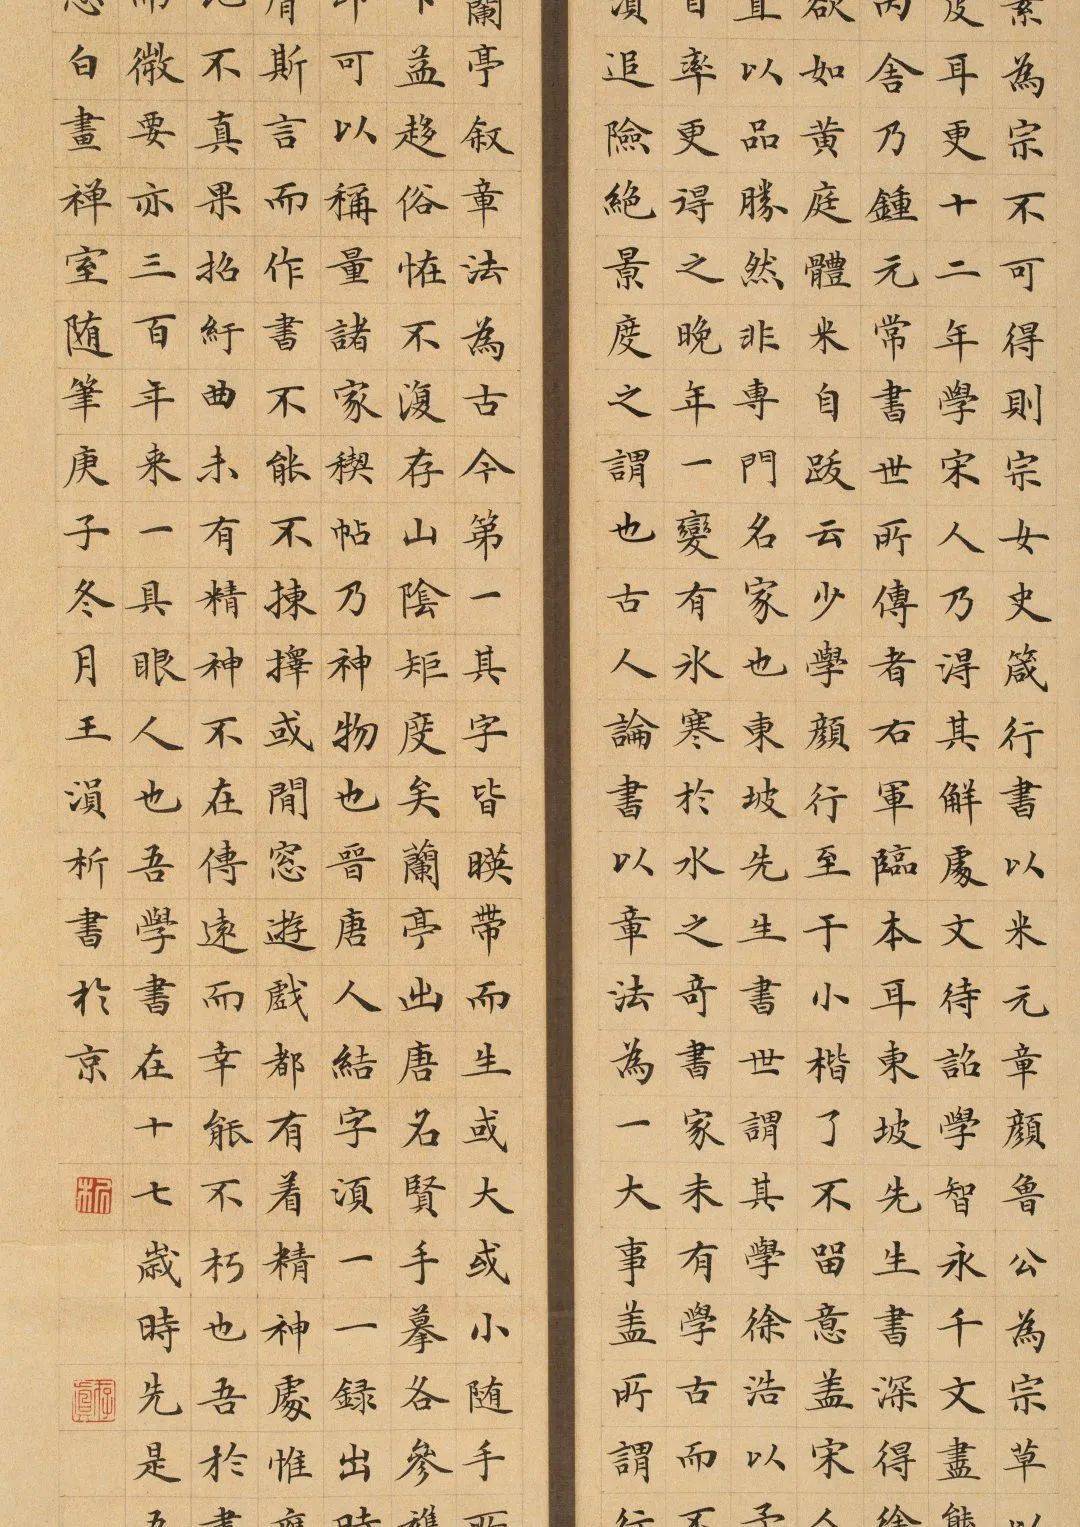 素為宗不可得則宗女史箴行書以米元章顔魯公為宗草以
皮耳更十二年學宋人乃得其解處文待詔學智永千文盡能
丙舍乃鍾元常書世所傳者右軍臨本耳東坡先生書深得徐
欲如黄庭體米自跋云少學顔行至于小楷了不留意盖宋人
直以品勝然非專門名家也東坡先生書世謂其學徐浩以予
自率更得之晚年一變有氷寒於水之奇書家未有學古而不
湏追險絶景度之謂也古人論書以章法為一大事盖所謂行
蘭亭叙章法為古今第一其字皆暎帶而生或大或小随手所
下益趍俗恠不復存山陰矩度矣蘭亭出唐名賢手摹各參雜
可以稱量諸家稧帖乃神物也晉唐人結字湏一一録出時
斯言而作書不能不揀擇或閒窓遊戯都有着精神處惟應
不真果招紆曲未有精神不在傳逺而幸能不朽也吾於書
而微要亦三百年来一具眼人也吾學書在十七歳時先是吾
白畫禅室随筆庚子冬月王溳析書於京
析